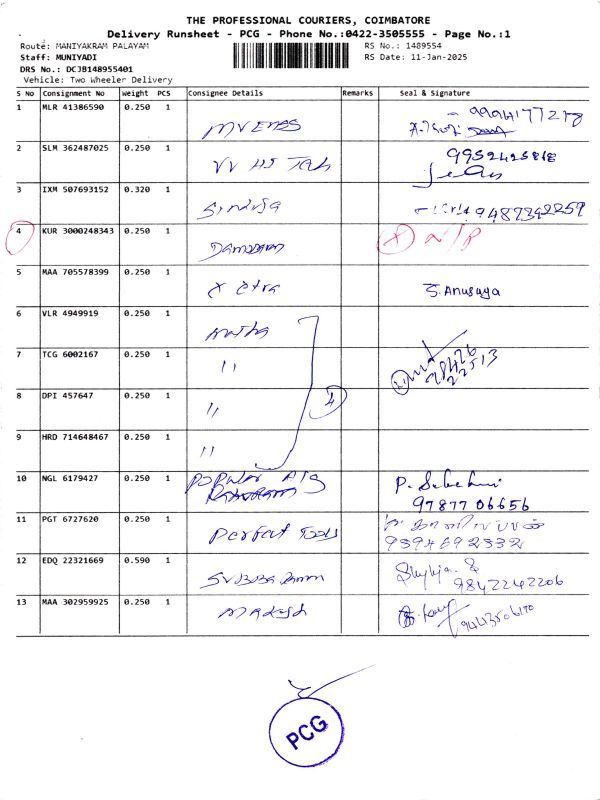 THE PROFESSIONAL COURIERS, COIMBATORE
Delivery Runsheet - PCG - Phone No.:0422-3505555 - Page No.:1
Route: MANIYAKRAM PALAYAM RS No.: 1489554
Staff: MUNIYADI RS Date: 11-Jan-2025
DRS No.: DCJB148955401
Vehicle: Two Wheeler Delivery
S No Consignment No Weight PCS Consignee Details Remarks Seal & Signature
1 MLR 41386590 0.250 1
2 SLM 362487025 0.250 1 9952425818
3 IXM 507693152 0.320 1
4 KUR 3000248343 0.250 1 Damodaran
5 MAA 705578399 0.250 1 X etra S. Anusuya
6 VLR 4949919 0.250 1
7 TCG 6002167 0.250 1 "
8 DPI 457647 0.250 1 " 4
9 HRD 714648467 0.250 1 "
10 NGL 6179427 0.250 1 Popular
9787706656
11 PGT 6727620 0.250 1 Perfect Tools
9394692332
12 EDQ 22321669 0.590 1
9842242206
13 MAA 302959925 0.250 1 Madesh
PCG